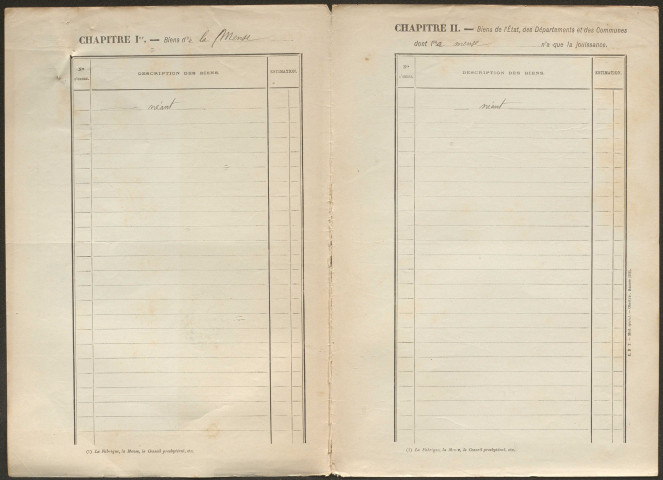 CHAPITRE Ier. — Biens de la Mense
Nos
DESCRIPTION DES BIENS
ESTIMATION.
néant
(1) La Fabrique, la Mense, le Conseil presbytéral, etc.
CHAPITRE II. — Biens de l'État, des Départements et des Communes
dont la mense n'a que la jouissance.
Nos
DESCRIPTION DES BIENS
ESTIMATION.
néant
(1) La Fabrique, la Mense, le Conseil presbytéral, etc.